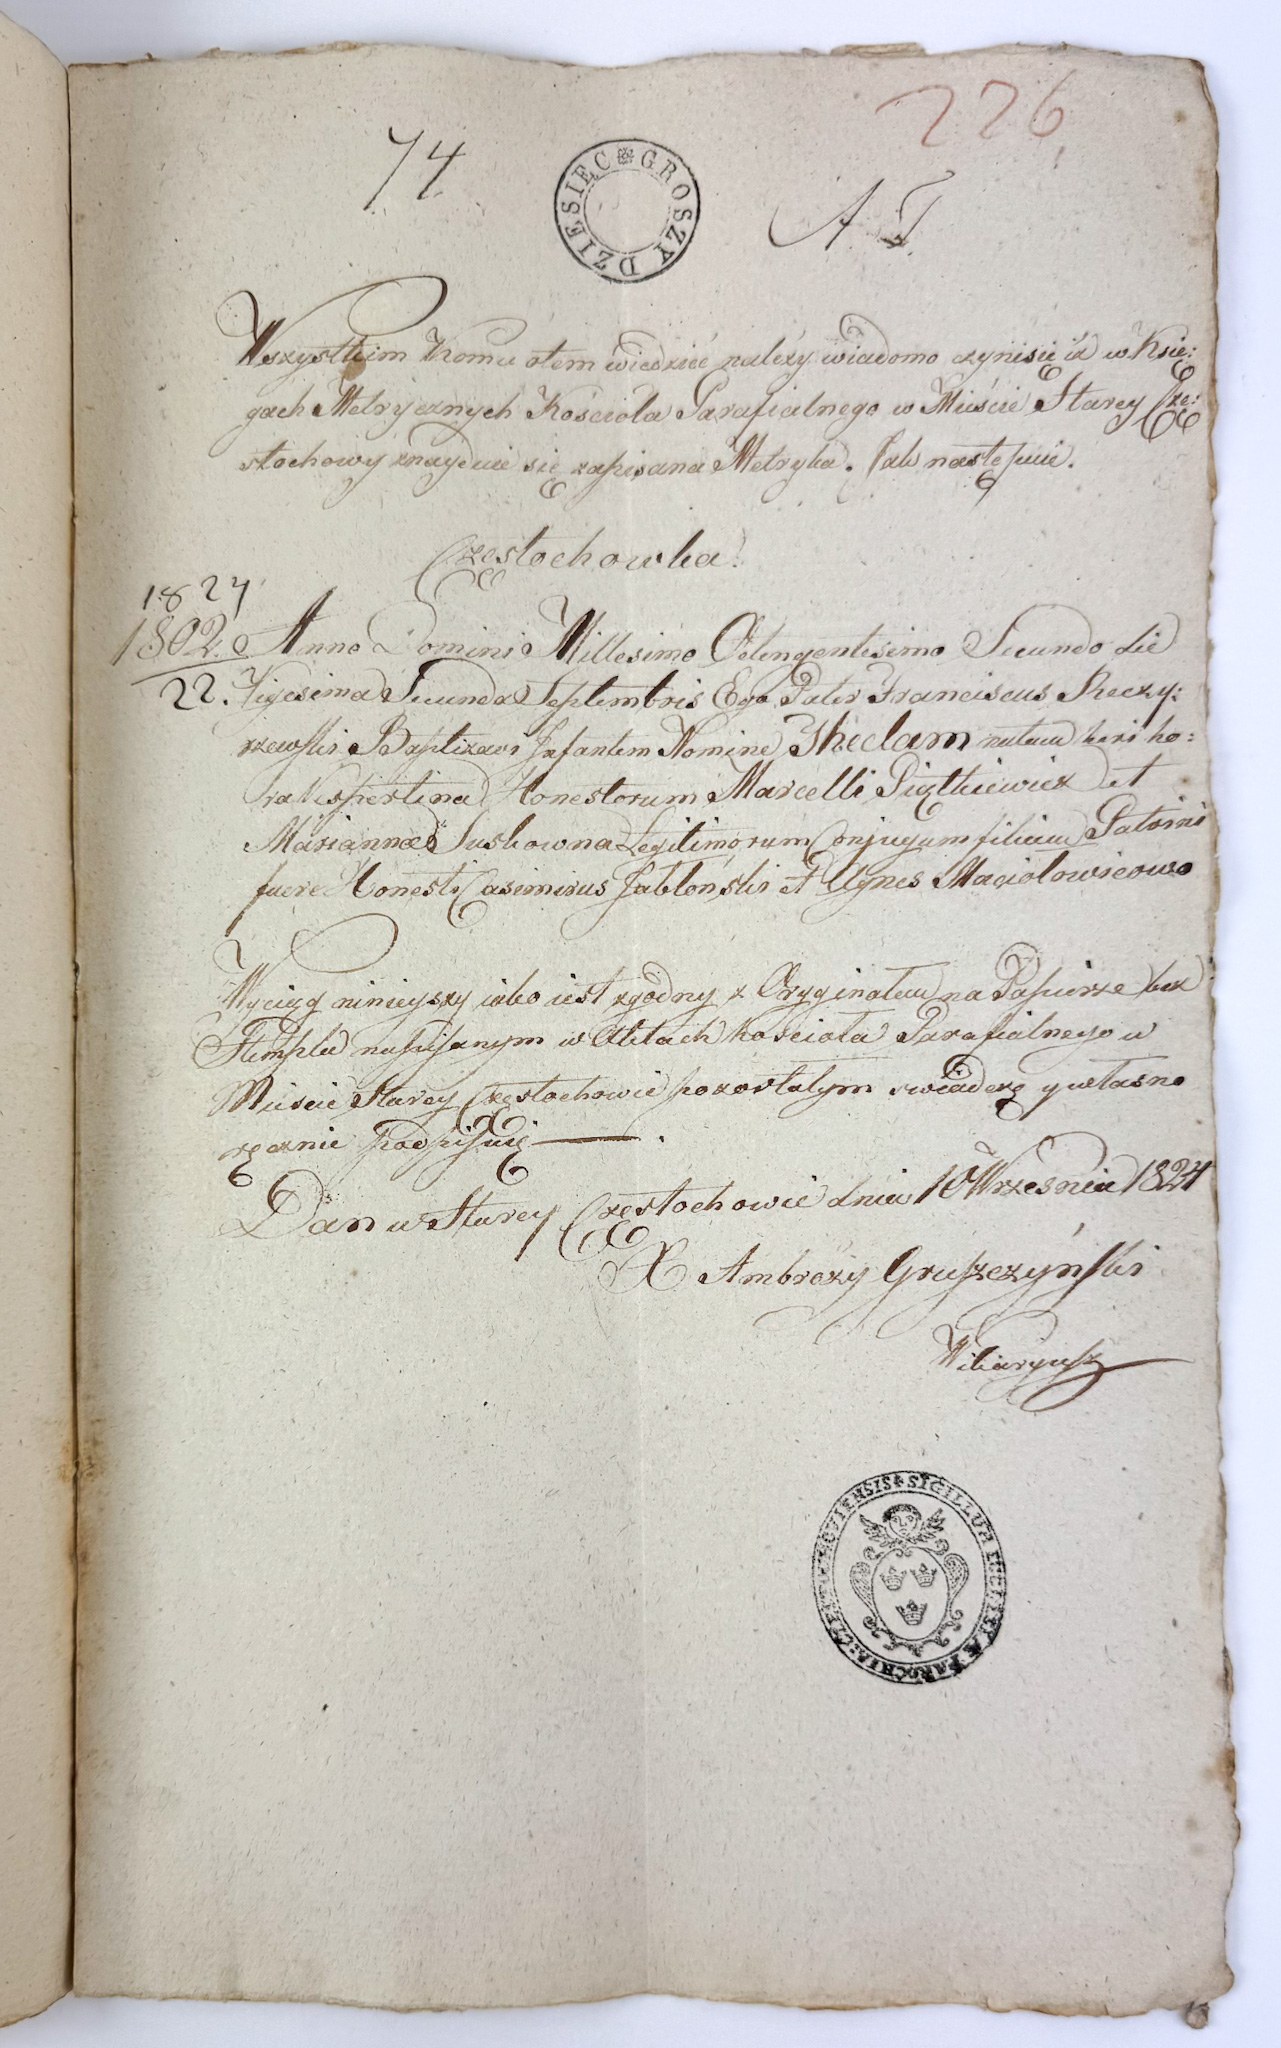 226
74
DZIESIĘC GROSZY
A T
Wszystkim Komu otem wiedzieć należy wiadomo czynisię iż w Księ:
gach Metrycznych Kościoła Parafialnego w Mieście Starey Czę:
stochowy znayduie się zapisana Metryka. Jak następuie.
Częstochowka.
1824
1802. Anno Domini Millesimo Octengentesimo Secundo die
22. Vigesima Secunda Septembris Ego Pater Franciscus Rzeczy:
rzewski Baptizavi Infantem Nomine Theclam natam heri ho:
ra Vespertina Honestorum Marcelli Piątkiewicz et
Mariannæ Suskowna Legitimorum Conjugum filiam Patrini
fuere Honesti Casimirus Jabłoński et Agnes Maciołowicowa
Wyciąg ninieyszy iako iest zgodny z Oryginałem na Papierze bez
Stempla napisanym w Aktach kościoła Parafialnego w
Mieście Starey Częstochowie pozostałym swiadczę y własno
ręcznie podpisuię.
Dan w Starey Częstochowie dnia 10 Wrzesnia 1824
X Ambroży Gruszczyński
Wikaryusz
SIGILLUM ECCLESIÆ PAROCHIA: CZĘSTOCHOVIENSIS